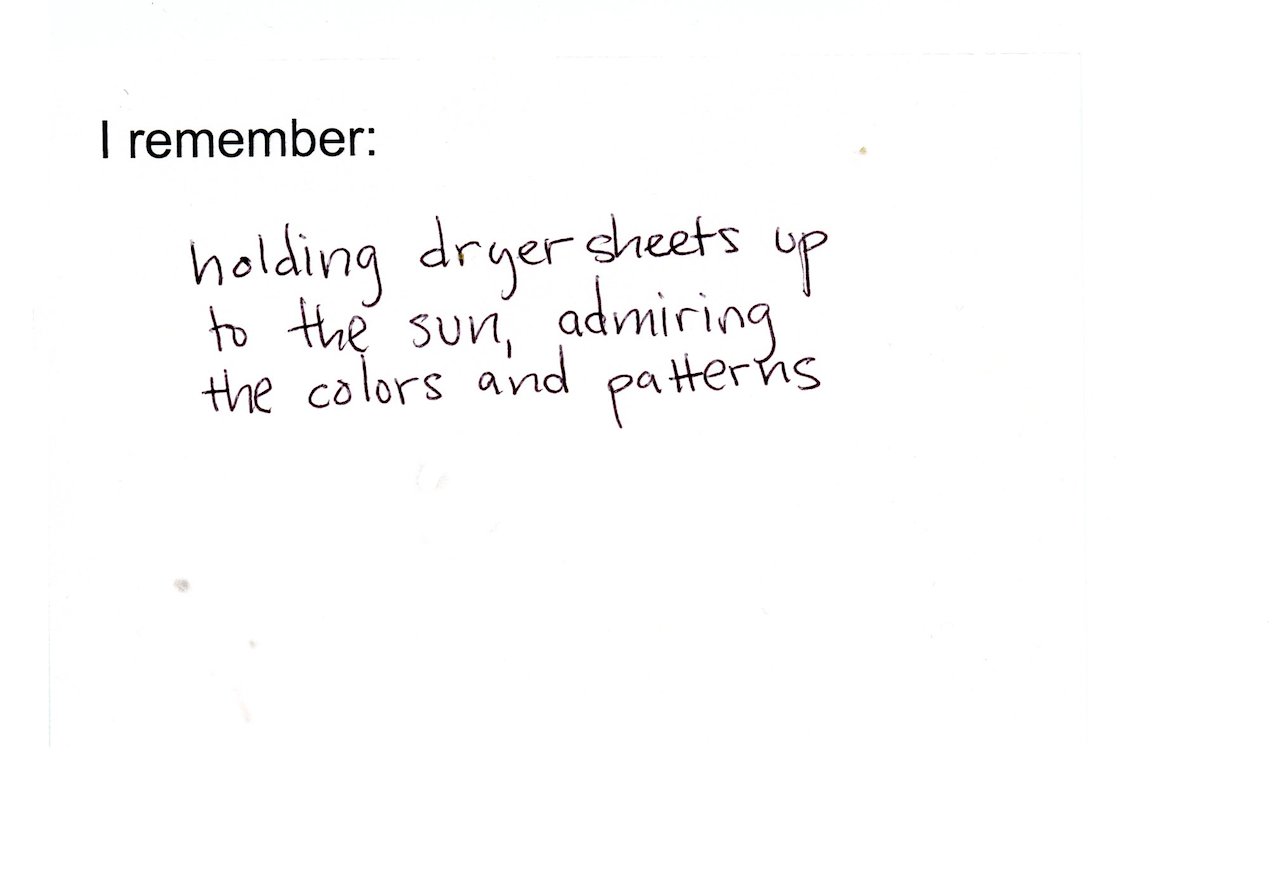 I remember:
holding dryer sheets up
to the sun, admiring
the colors and patterns